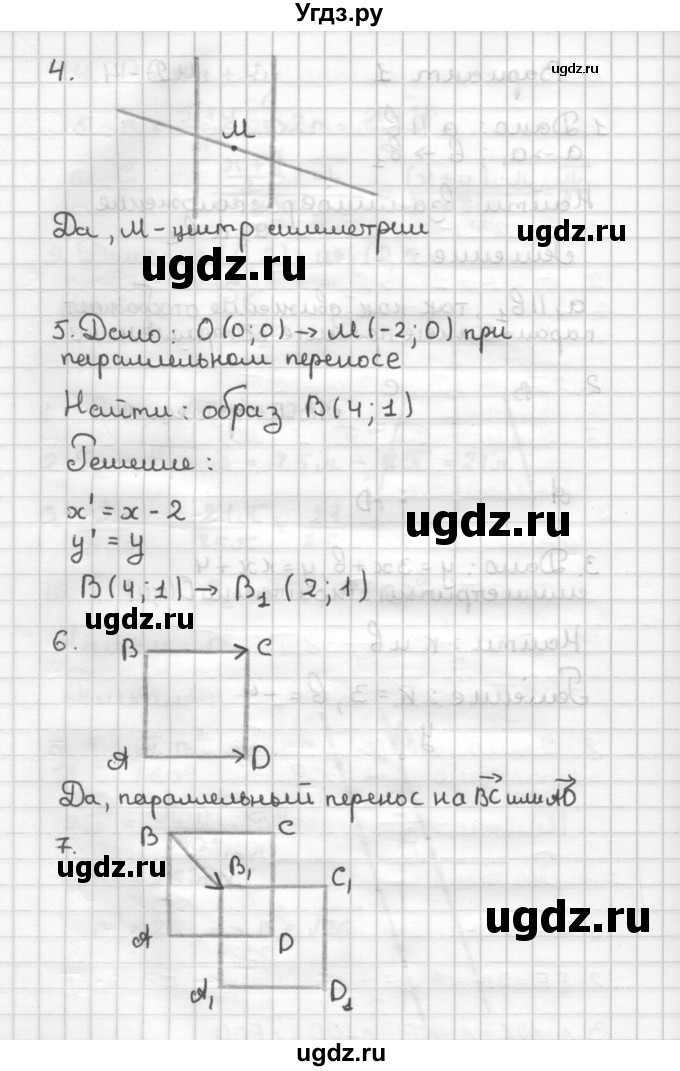 Угдз.ру
ugdz.ru
4.
M
Да, M - центр симметрии
ugdz.ru
ugdz.ru
5. Дано: O(0;0) → M(-2;0) при
параллельном переносе
Найти: образ B(4;1)
Решение:
x' = x - 2
ugdz.ru
y' = y
B(4;1) → B₁(2;1)
ugdz.ru
6.
B C
A D
Да, параллельный перенос на BC или AD
7.
B C
ugdz.ru
B₁ C₁
ugdz.ru
A D
A₁ D₁
ugdz.ru